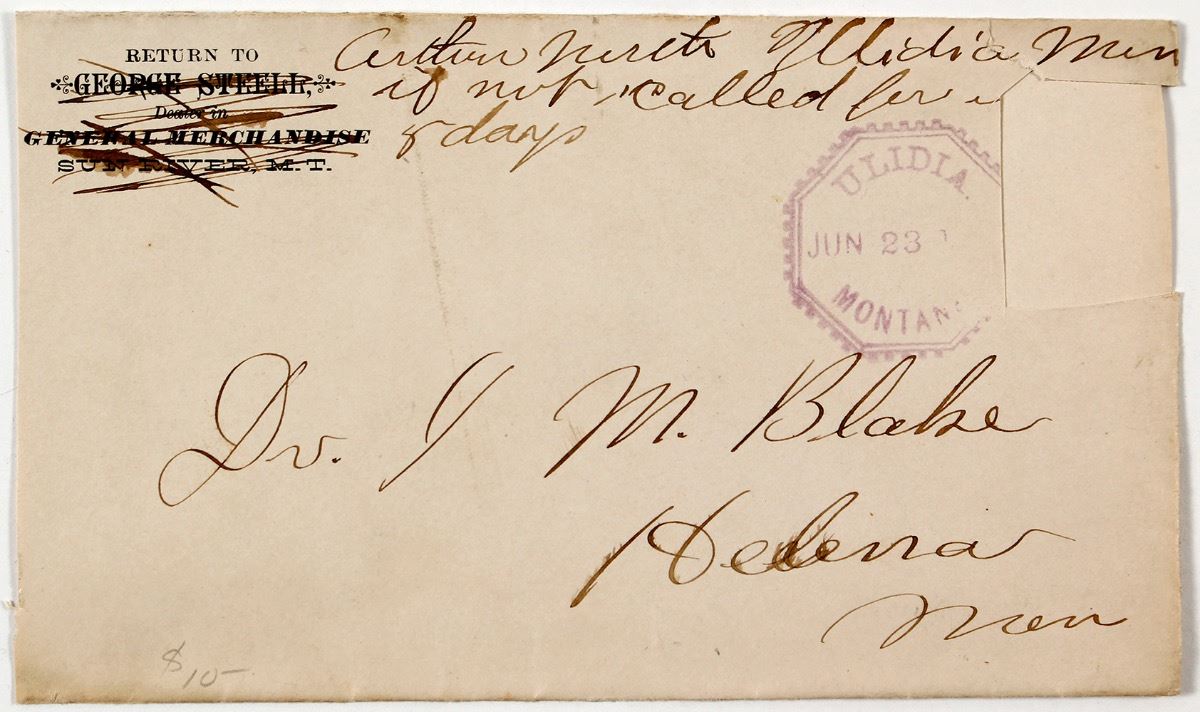 RETURN TO
GEORGE STEELL,
Dealer in
GENERAL MERCHANDISE
SUN RIVER, M.T.
Ullidia Mon
if not called for
8 days
ULIDIA
JUN 23
MONTANA
Dr. I M. Blake
Helena
Mon
$10-